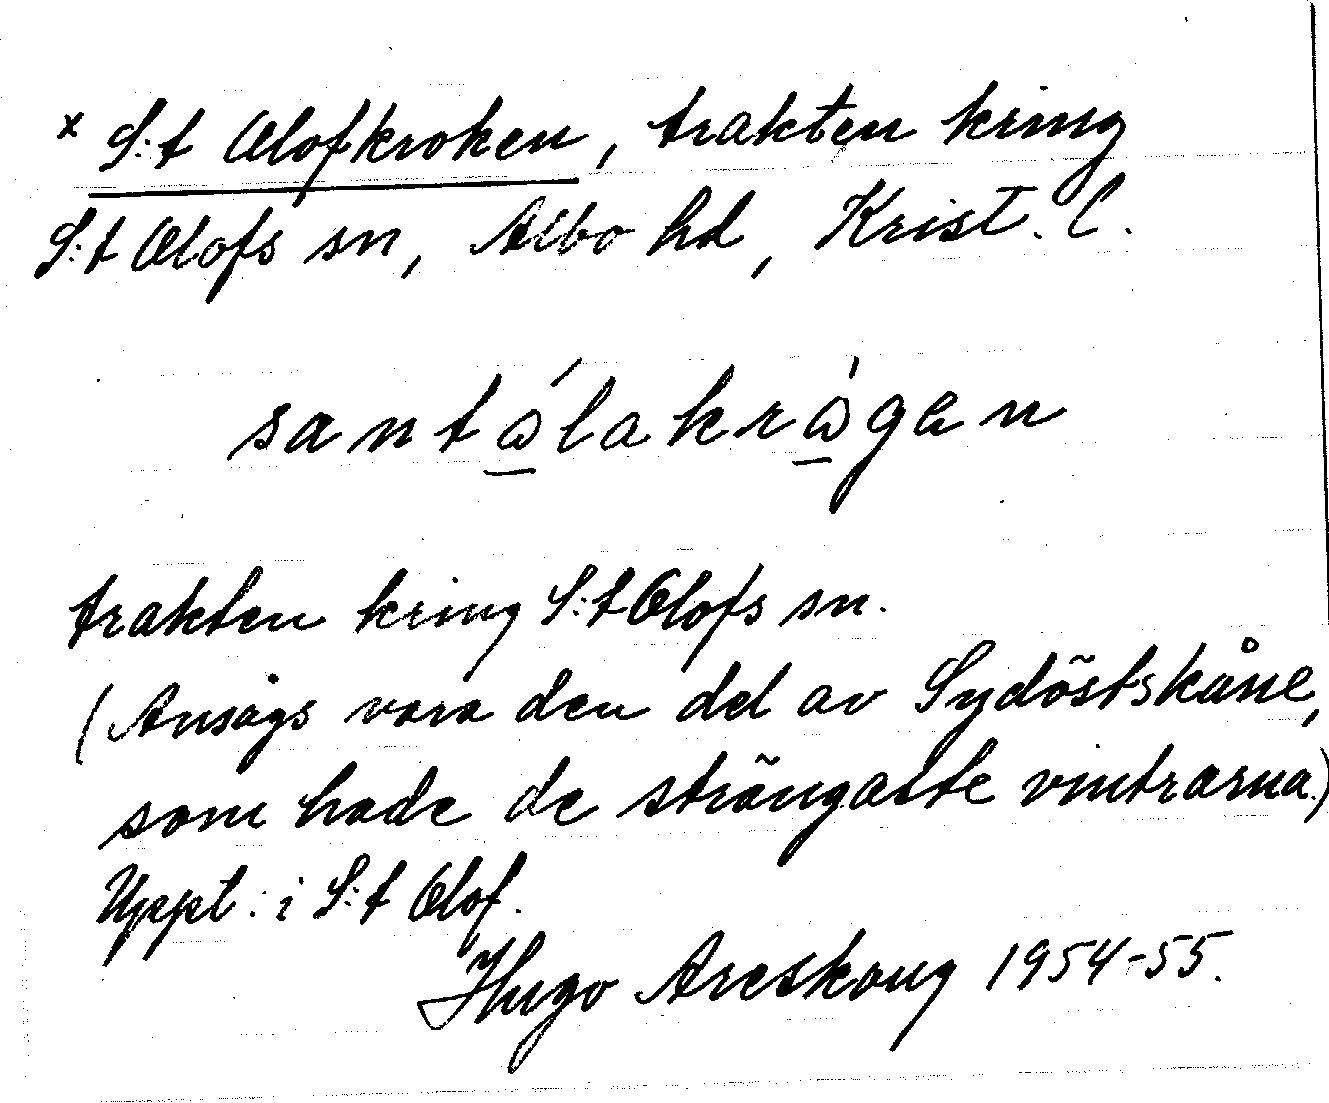 x S:t Olofkroken, trakten kring
S:t Olofs sn, Albo hd, Krist. l.
santώ̲lakrὼ̲gæn
trakten kring S:t Olofs sn.
(Ansågs vara den del av Sydöstskåne,
som hade de strängaste vintrarna.)
Uppt. i S:t Olof.
Hugo Areskoug 1954-55.